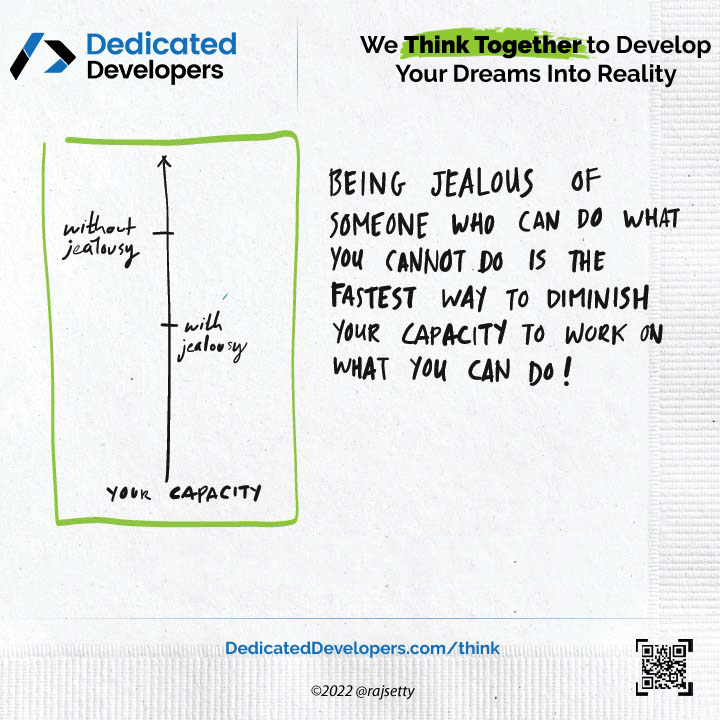 Dedicated
Developers
We Think Together to Develop
Your Dreams Into Reality
without
jealousy
with
jealousy
YOUR CAPACITY
BEING JEALOUS OF
SOMEONE WHO CAN DO WHAT
YOU CANNOT DO IS THE
FASTEST WAY TO DIMINISH
YOUR CAPACITY TO WORK ON
WHAT YOU CAN DO!
DedicatedDevelopers.com/think
©2022 @rajsetty